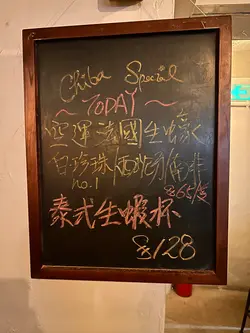 Chiba Special
~ TODAY ~
空運法國生蠔
白珍珠
no.1 $65/隻
泰式生蝦杯
$128